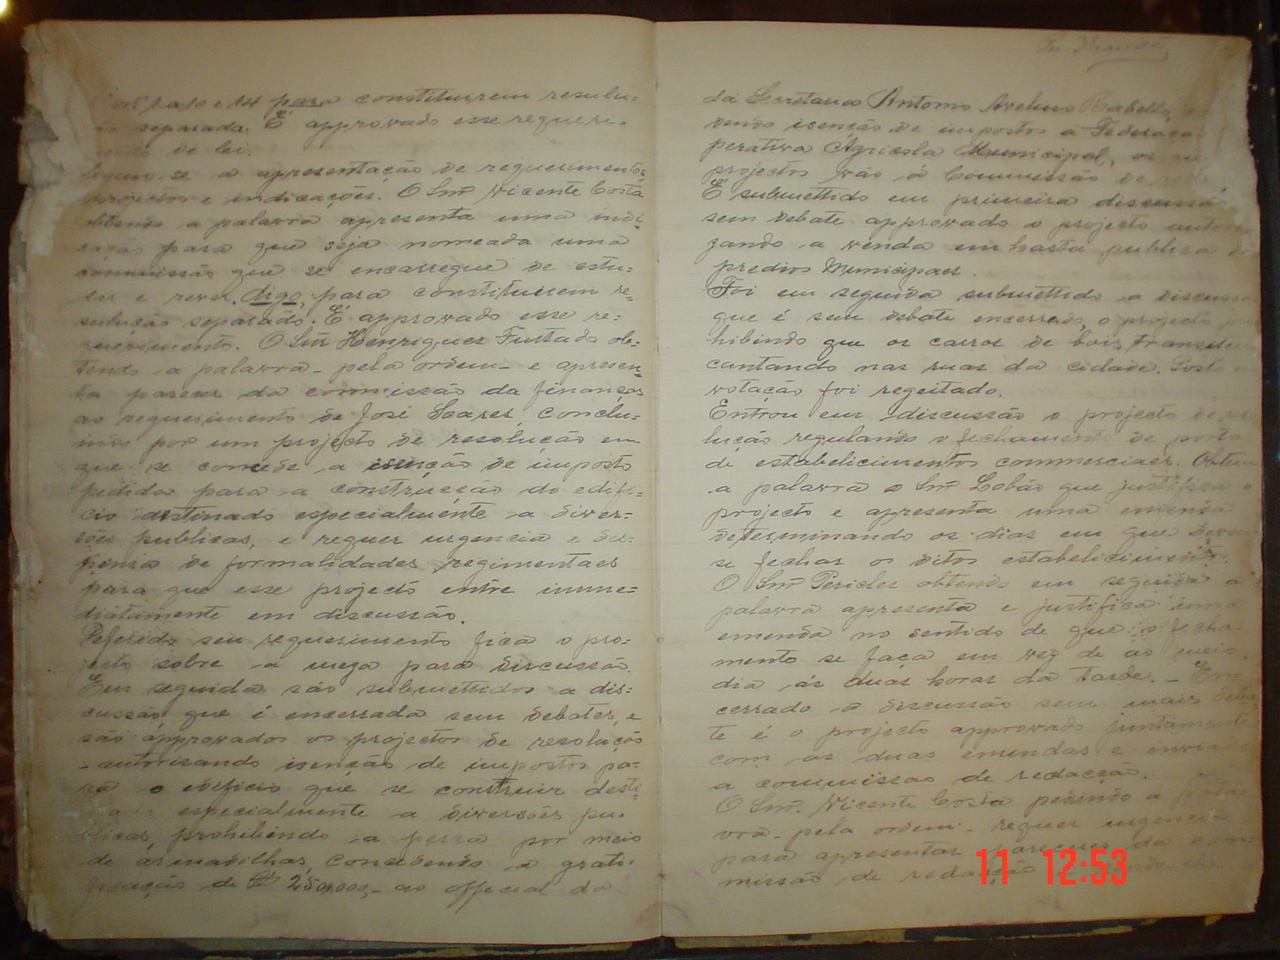 e 14 para constituirem resulu=
separada. É approvado esse requeri-
de lei.
se a apresentação de requerimentos,
projectos e indicações. O Snr Vicente Costa
obtendo a palavra apresenta uma indi-
cação para que seja nomeada uma
commissão que se encarregue de estu-
dar e rever, digo, para constituirem re=
sulução separado. É approvado esse re=
querimento. O Snr Henriques Furtado ob=
tendo a palavra - pela ordem - e apresen=
ta parecer da commissão da finanças
ao requerimento de José Soares, conclu-
indo por um projecto de resolução em
que se concede a isenção de imposto
pedida para a construcção do edifi-
cio destinado especialmente a diver=
sões publicas, e requer urgencia e des-
pensa de formalidades regimentaes
para que esse projecto entre imme=
diatamente em discussão.
Deferido seu requerimento fica o pro=
jecto sobre a meza para discussão.
Em seguida são submettidos a dis=
cussão que é encerrada sem debates, e
são approvados os projectos de resolução
autorisando isenção de impostos pa=
ra o edificio que se construir desti-
especialmente a diversões pu-
blicas, prohibindo a pesca por meio
de armadilhas, concedendo a grati-
ficação de 250,000,- ao official da
da Secretaria Antonio Avelino Rabello,
vendo isenção de impostos a
perativa Agricola Municipal, os
projectos vão à Commissão de
É submettido em primeira discussão
sem debate approvado o projecto autori
zando a venda em hasta publica
predios Municipaes.
Foi em seguida submettido a discussão
que é sem debate encerrado, o projecto
hibindo que os carros de bois transitem
cantando nas ruas da cidade. Posto
votação foi regeitado.
Entrou em discussão o projecto de
lução regulando o fechamento de porta
de estabelicimentos commerciaes. Obtem
a palavra o Snr Lobão que justifica o
projecto e apresenta uma emenda
determinando os dias em que devem
se fechar os ditos estabelicimentos.
O Snr Pericles obtendo em seguida a
palavra apresenta e justifica uma
emenda no sentido de que o fecha-
mento se faça em vez de ao meio
dia ás duas horas da tarde. - En
cerrado a discussão sem mais deba
te é o projecto approvado juntamente
com as duas emendas e enviado
a commissão de redacção.
O Snr. Vicente Costa pedindo a pala
vra - pela ordem - requer urgencia
para apresentar pareceres da com-
missão de redação
11 12:53